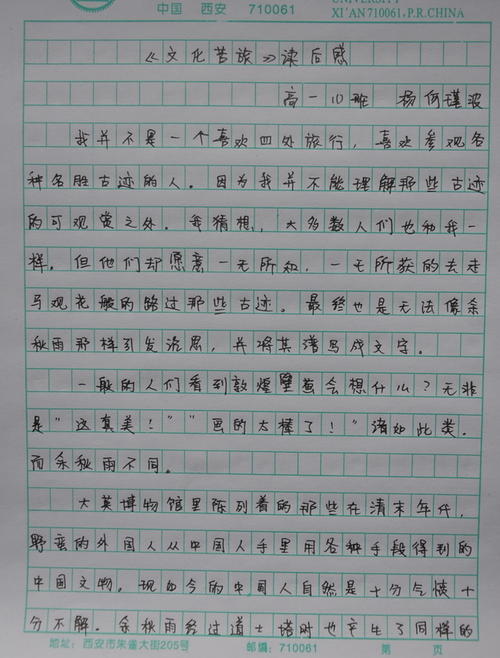 中国 西安 710061
UNIVERSITY
XI'AN710061,P.R.CHINA
《文化苦旅》读后感
高一10班 杨何瑾波
我并不是一个喜欢四处旅行，喜欢参观各
种名胜古迹的人。因为我并不能理解那些古迹
的可观赏之处。我猜想，大多数人们也和我一
样。但他们却愿意一无所知，一无所获的去走
马观花般的路过那些古迹。最终也是无法像余
秋雨那样引发沉思，并将其谱写成文字。
一般的人们看到敦煌壁画会想什么？无非
是"这真美！""画的太棒了！"诸如此类.
而余秋雨不同。
大英博物馆里陈列着的那些在清末年代，
野蛮的外国人从中国人手里用各种手段得到的
中国文物。现如今的中国人自然是十分气愤十
分不解。余秋雨经过道士塔时也产生了同样的
地址：西安市朱雀大街205号 邮编：710061 第 页